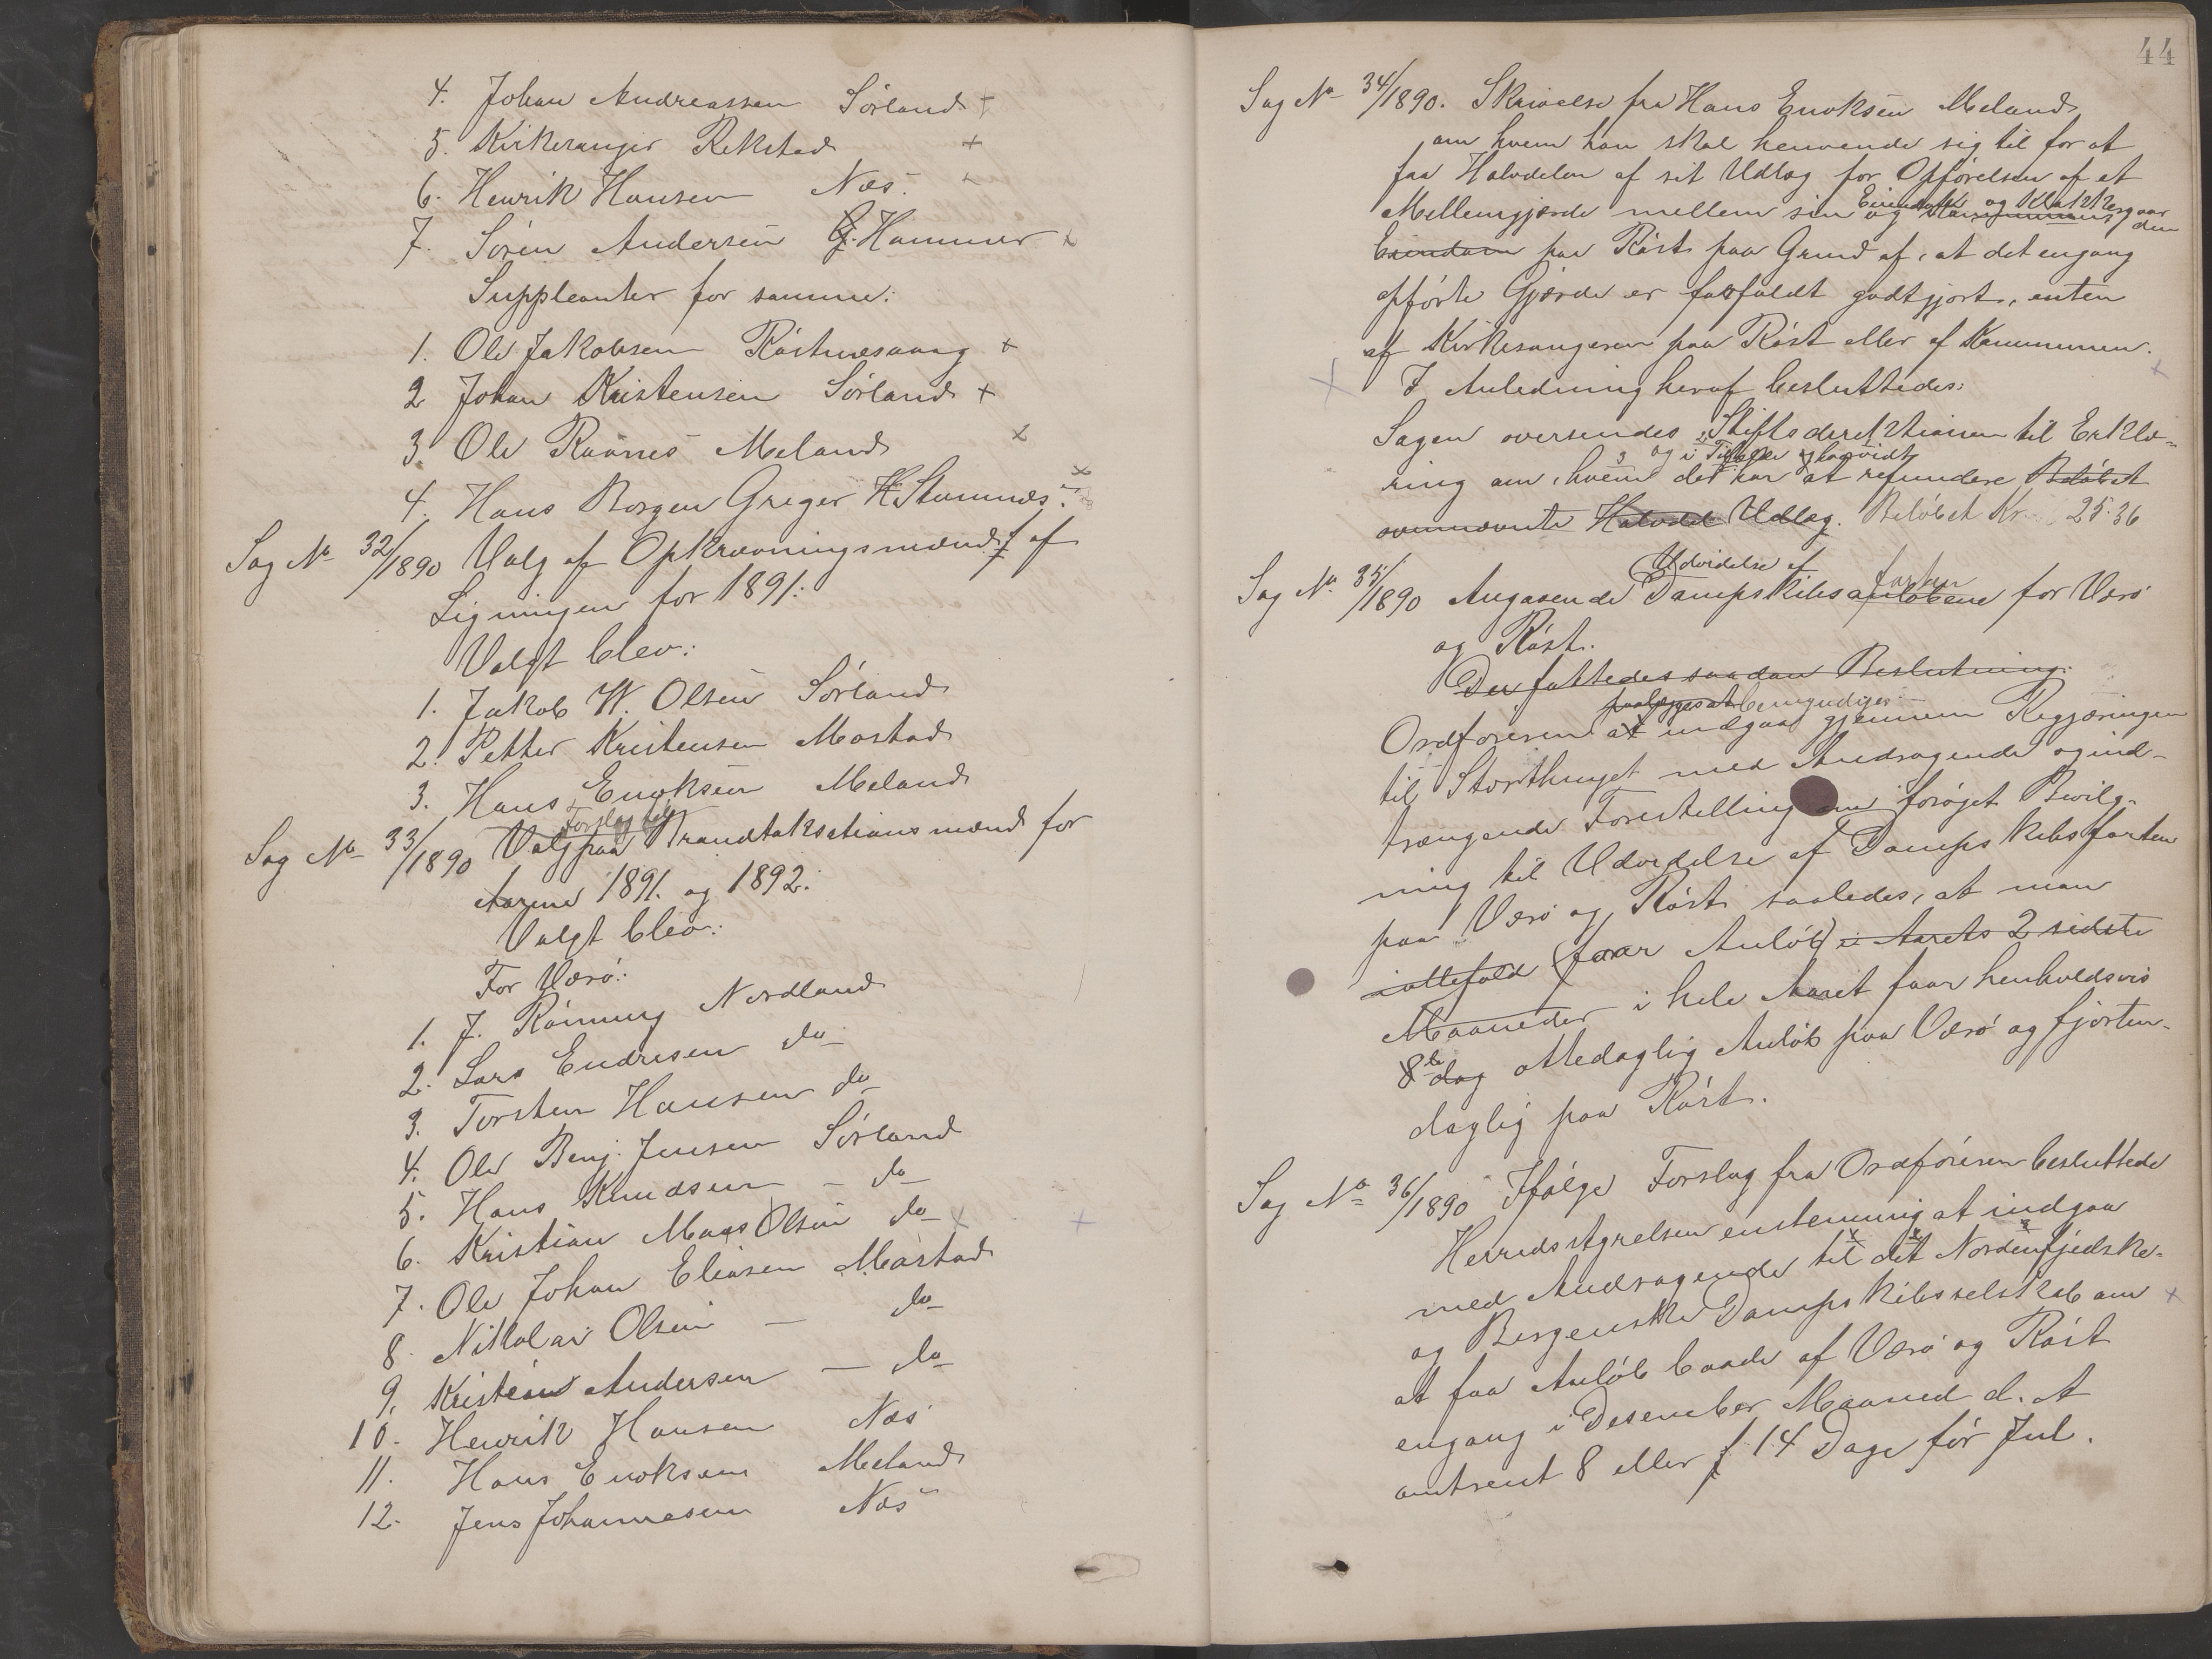 4. Johan Andreassen Sørland +
5. Kirkesanger Rekstad +
6. Henrik Hansen Næs. +
7. Søren Andersen G. Hammer +
Suppleanter for samme:
1. Ole Jakobsen Røstnesvaag +
2 Johan Kristensen Sørland +
3 Ole Raanes Meland +
4. Hans Borgen Greger H. Stamnæs. +
Sag No 32/1890 Valg af Opkrævningsmænd f af
Ligningen for 1891:
Valgt blev:
1. Jakob W. Olsen Sørland
2. Petter Kristensen Mostad
3. Hans Enoksen Meland
Forslag til
Sag No 33/1890 Valg paa Brandtakstionsmænd for
Aarene 1891. og 1892:
Valgt blev:
For Værø:
1. J. Rønning Nordland
2. Lars Endresen do
3. Torsten Hansen do
4. Ole Benj. Jensen Sørland
5. Hans Knudsen – do
6. Kristian Maas Olsen do +
7. Ole Johan Eliasen Mostad
8. Nikolai Olsen – do
9. Kristian Andersen – do
10. Henrik Hansen Næs
11. Hans Enoksen Meland
12. Jens Johannesen Næs
44
Sag No 34/1890. Skrivelse fra Hans Enoksen Meland
om hvem han skal henvende sig til for at
faa Halvdelen af sit Udlæg for Opførelsen af et
Eiendom og Klokkergaarden
Mellemgjærde mellem sin og Kommunens
Eiendom paa Røst paa Grund af, at det engang
opførte Gjærde er forfaldt godtgjort, enten
af Kirkesangeren paa Røst eller af Kommunen.
I Anledning heraf besluttedes:
Sagen oversendes Stiftsdirektionen til Erklæ-
og i Tilfælde hvorvidt
ring om, hvem det har at refundere Beløbet
ovennævnte Halvdel Udlæg. Beløbet Kr 25.36
Udvidelse af farten
Sag No 35/1890 Angaaende Dampskibsanløbene for Værø
og Røst.
Der fattedes saadan Beslutning:
paalægges at bemyndiges
Ordføreren at indgaa gjennem Regjæringen
til Storthinget med Andragende og ind-
trængende Forestilling om forøget Bevilg-
ning til Udvidelse af Dampskibsfarten
paa Værø og Røst saaledes, at man
iallefald faar Anløb i Aarets 2 sidste
Maaneder i hele Aaret faar henholdsvis
8de dag ottedaglig Anløb paa Værø og fjorten-
daglig paa Røst.
Sag No 36/1890 Ifølge Forslag fra Ordføreren besluttede
Herredsstyrelsen enstemmig at indgaa
med Andragende til det Nordenfjeldske-
og Bergenske Dampskibsselskab om +
at faa Anløb baade af Værø og Røst
engang i Desember Maaned d. A
omtrent 8 eller f 14 Dage før Jul.